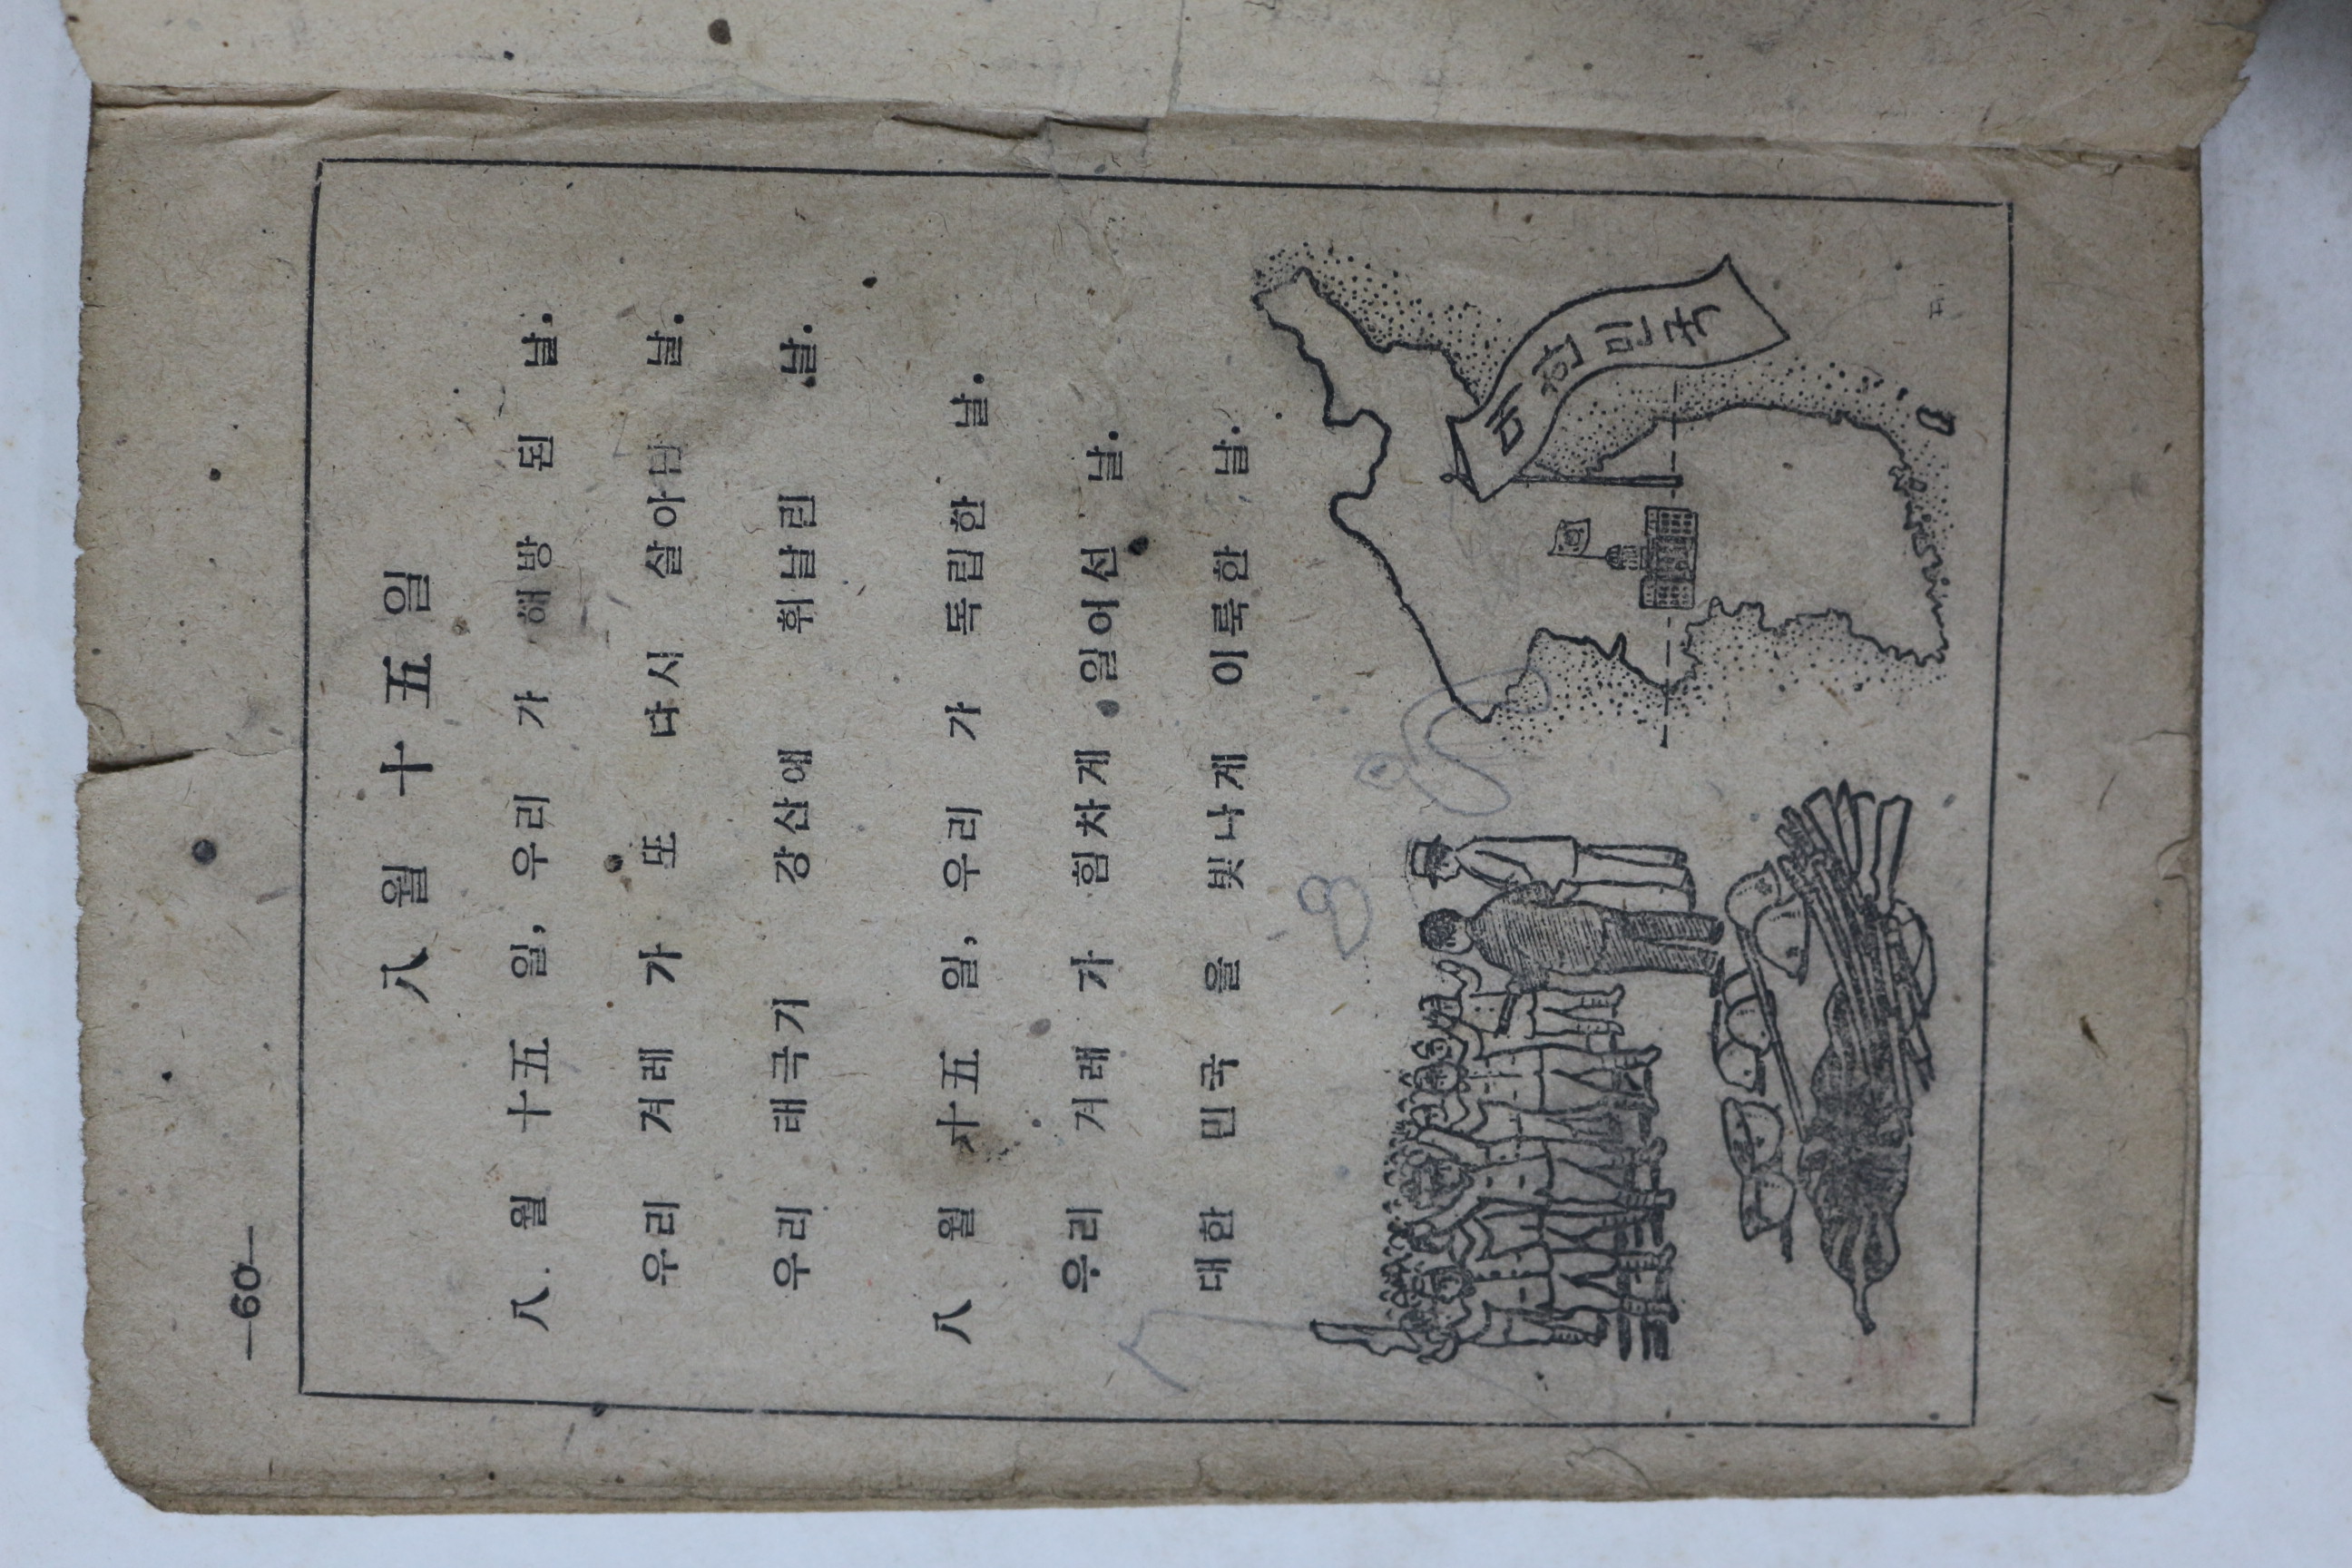 —60—
八월 十五일
八월 十五일, 우리 가 해방 된 날.
우리 겨레 가 또 다시 살아난 날.
우리 태극기 강산에 휘날린 날.
八월 十五일, 우리 가 독립한 날.
우리 겨레 가 힘차게 일어선 날.
대한 민국 을 빛나게 이룩한 날.
대한민국